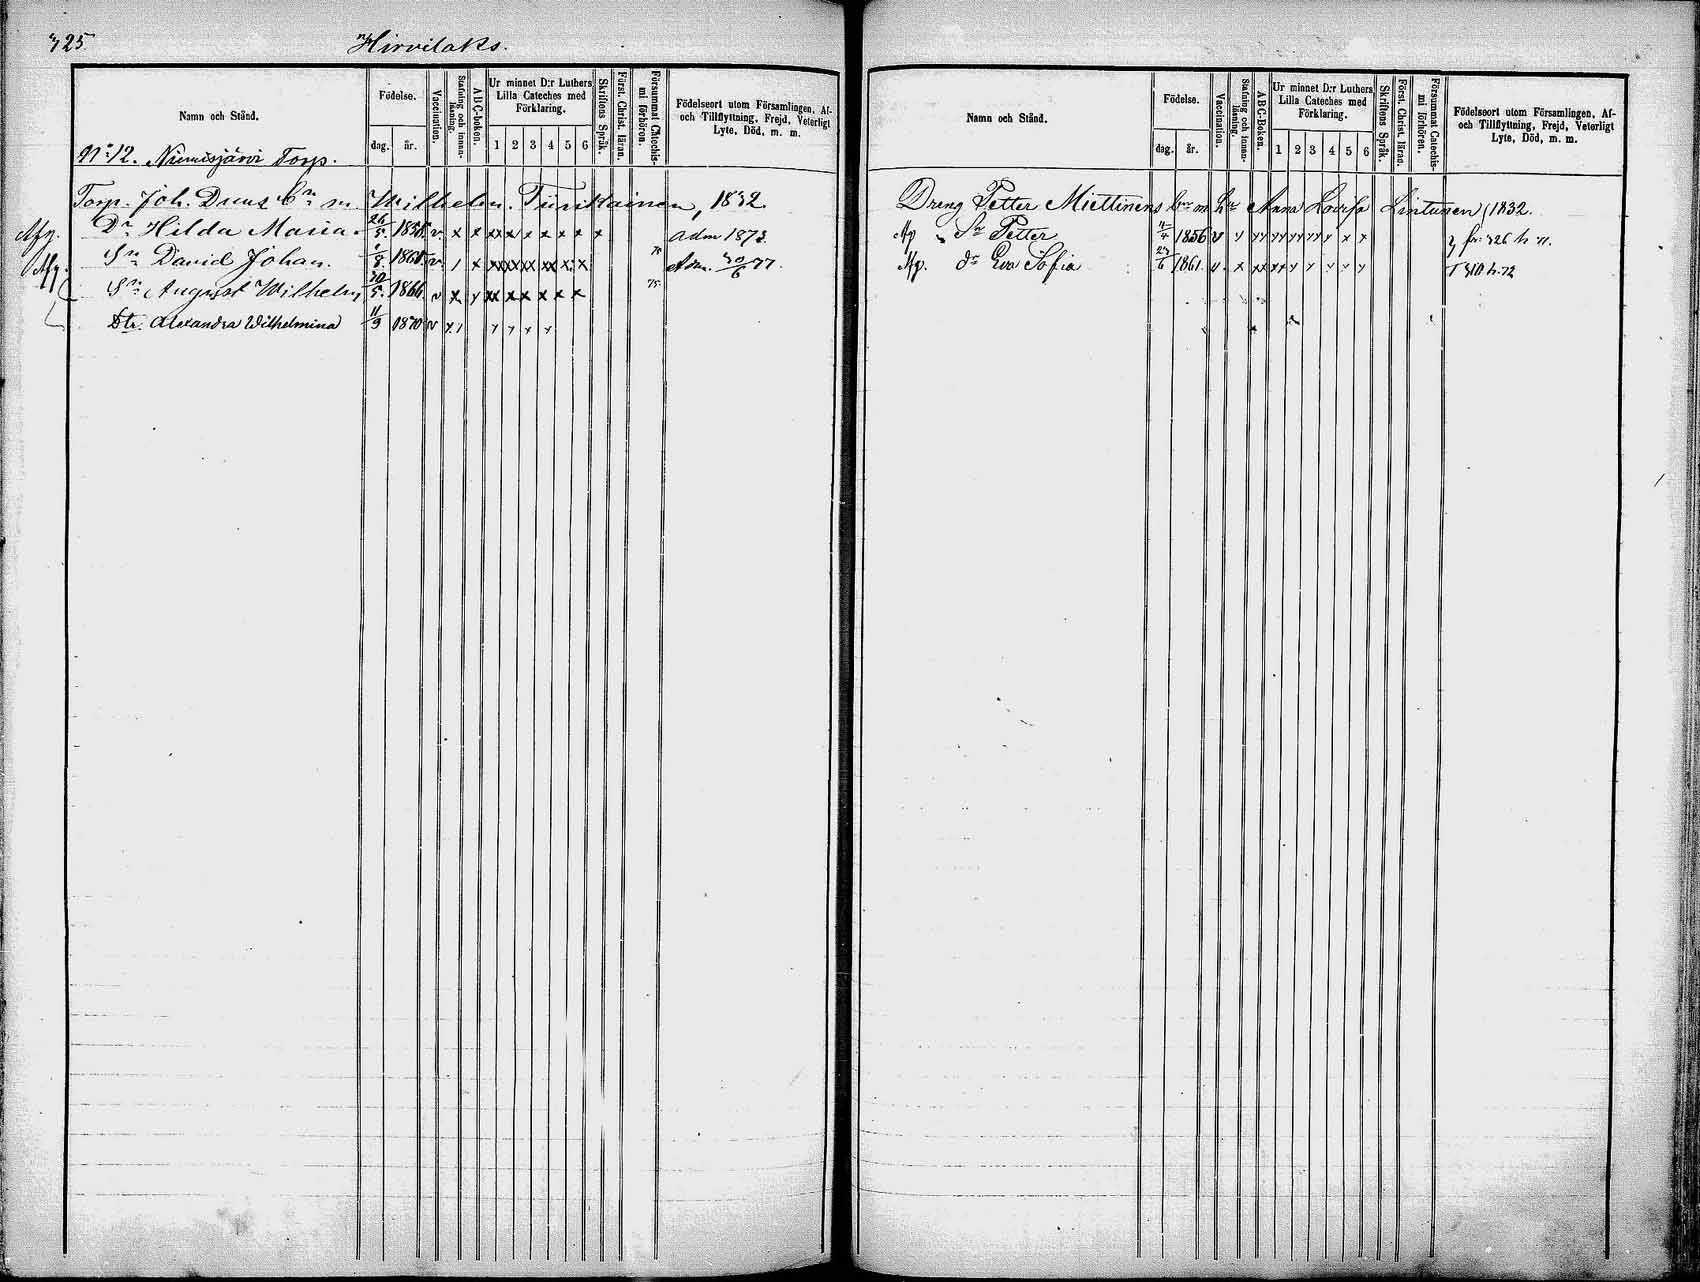 325
Hirvilaks.
Namn och Stånd.
Födelse.
dag. år.
Vaccination.
Stafning och innanläsning.
ABC-boken.
Ur minnet D:r Luthers Lilla Cateches med Förklaring.
1 2 3 4 5 6
Skriftens Språk.
Först. Christ. läran.
Försummat Catechismi förhören.
Födelseort utom Församlingen, Af- och Tillflyttning, Frejd, Veterligt Lyte, Död, m. m.
No 12. Niemisjärvi Torp.
Torp. Joh. Duus Bn m. Wilhelm. Tiirikainen, 1832.
Afg. Dr Hilda Maria 26/5 1855 v. x x xx x x x x x x Adm 1873.
Afg. Sn David Johan. 1/8 1860 v. 1 x xx xx xx xx x x 74 Adm. 30/6 77.
Sn August Wilhelm 30/5 1866 v x y xx x x x x x 75.
Dtr. Alexandra Wilhelmina 11/9 1870 v x 1 x x x x
Namn och Stånd.
Födelse.
dag. år.
Vaccination.
Stafning och innanläsning.
ABC-Boken.
Ur minnet D:r Luthers Lilla Cateches med Förklaring.
1 2 3 4 5 6
Skriftens Språk.
Först. Christ. läran.
Försummat Catechismi förhören.
Födelseort utom Församlingen, Af- och Tillflyttning, Frejd, Veterligt Lyte, Död, m. m.
Dreng Petter Miettinens bn m hu Anna Lovisa Lintunen (1832.
Afg Sn Petter 11/4 1856 v 326 h 71.
Afg. dr Eva Sofia 23/6 1861. v. 310 h. 72